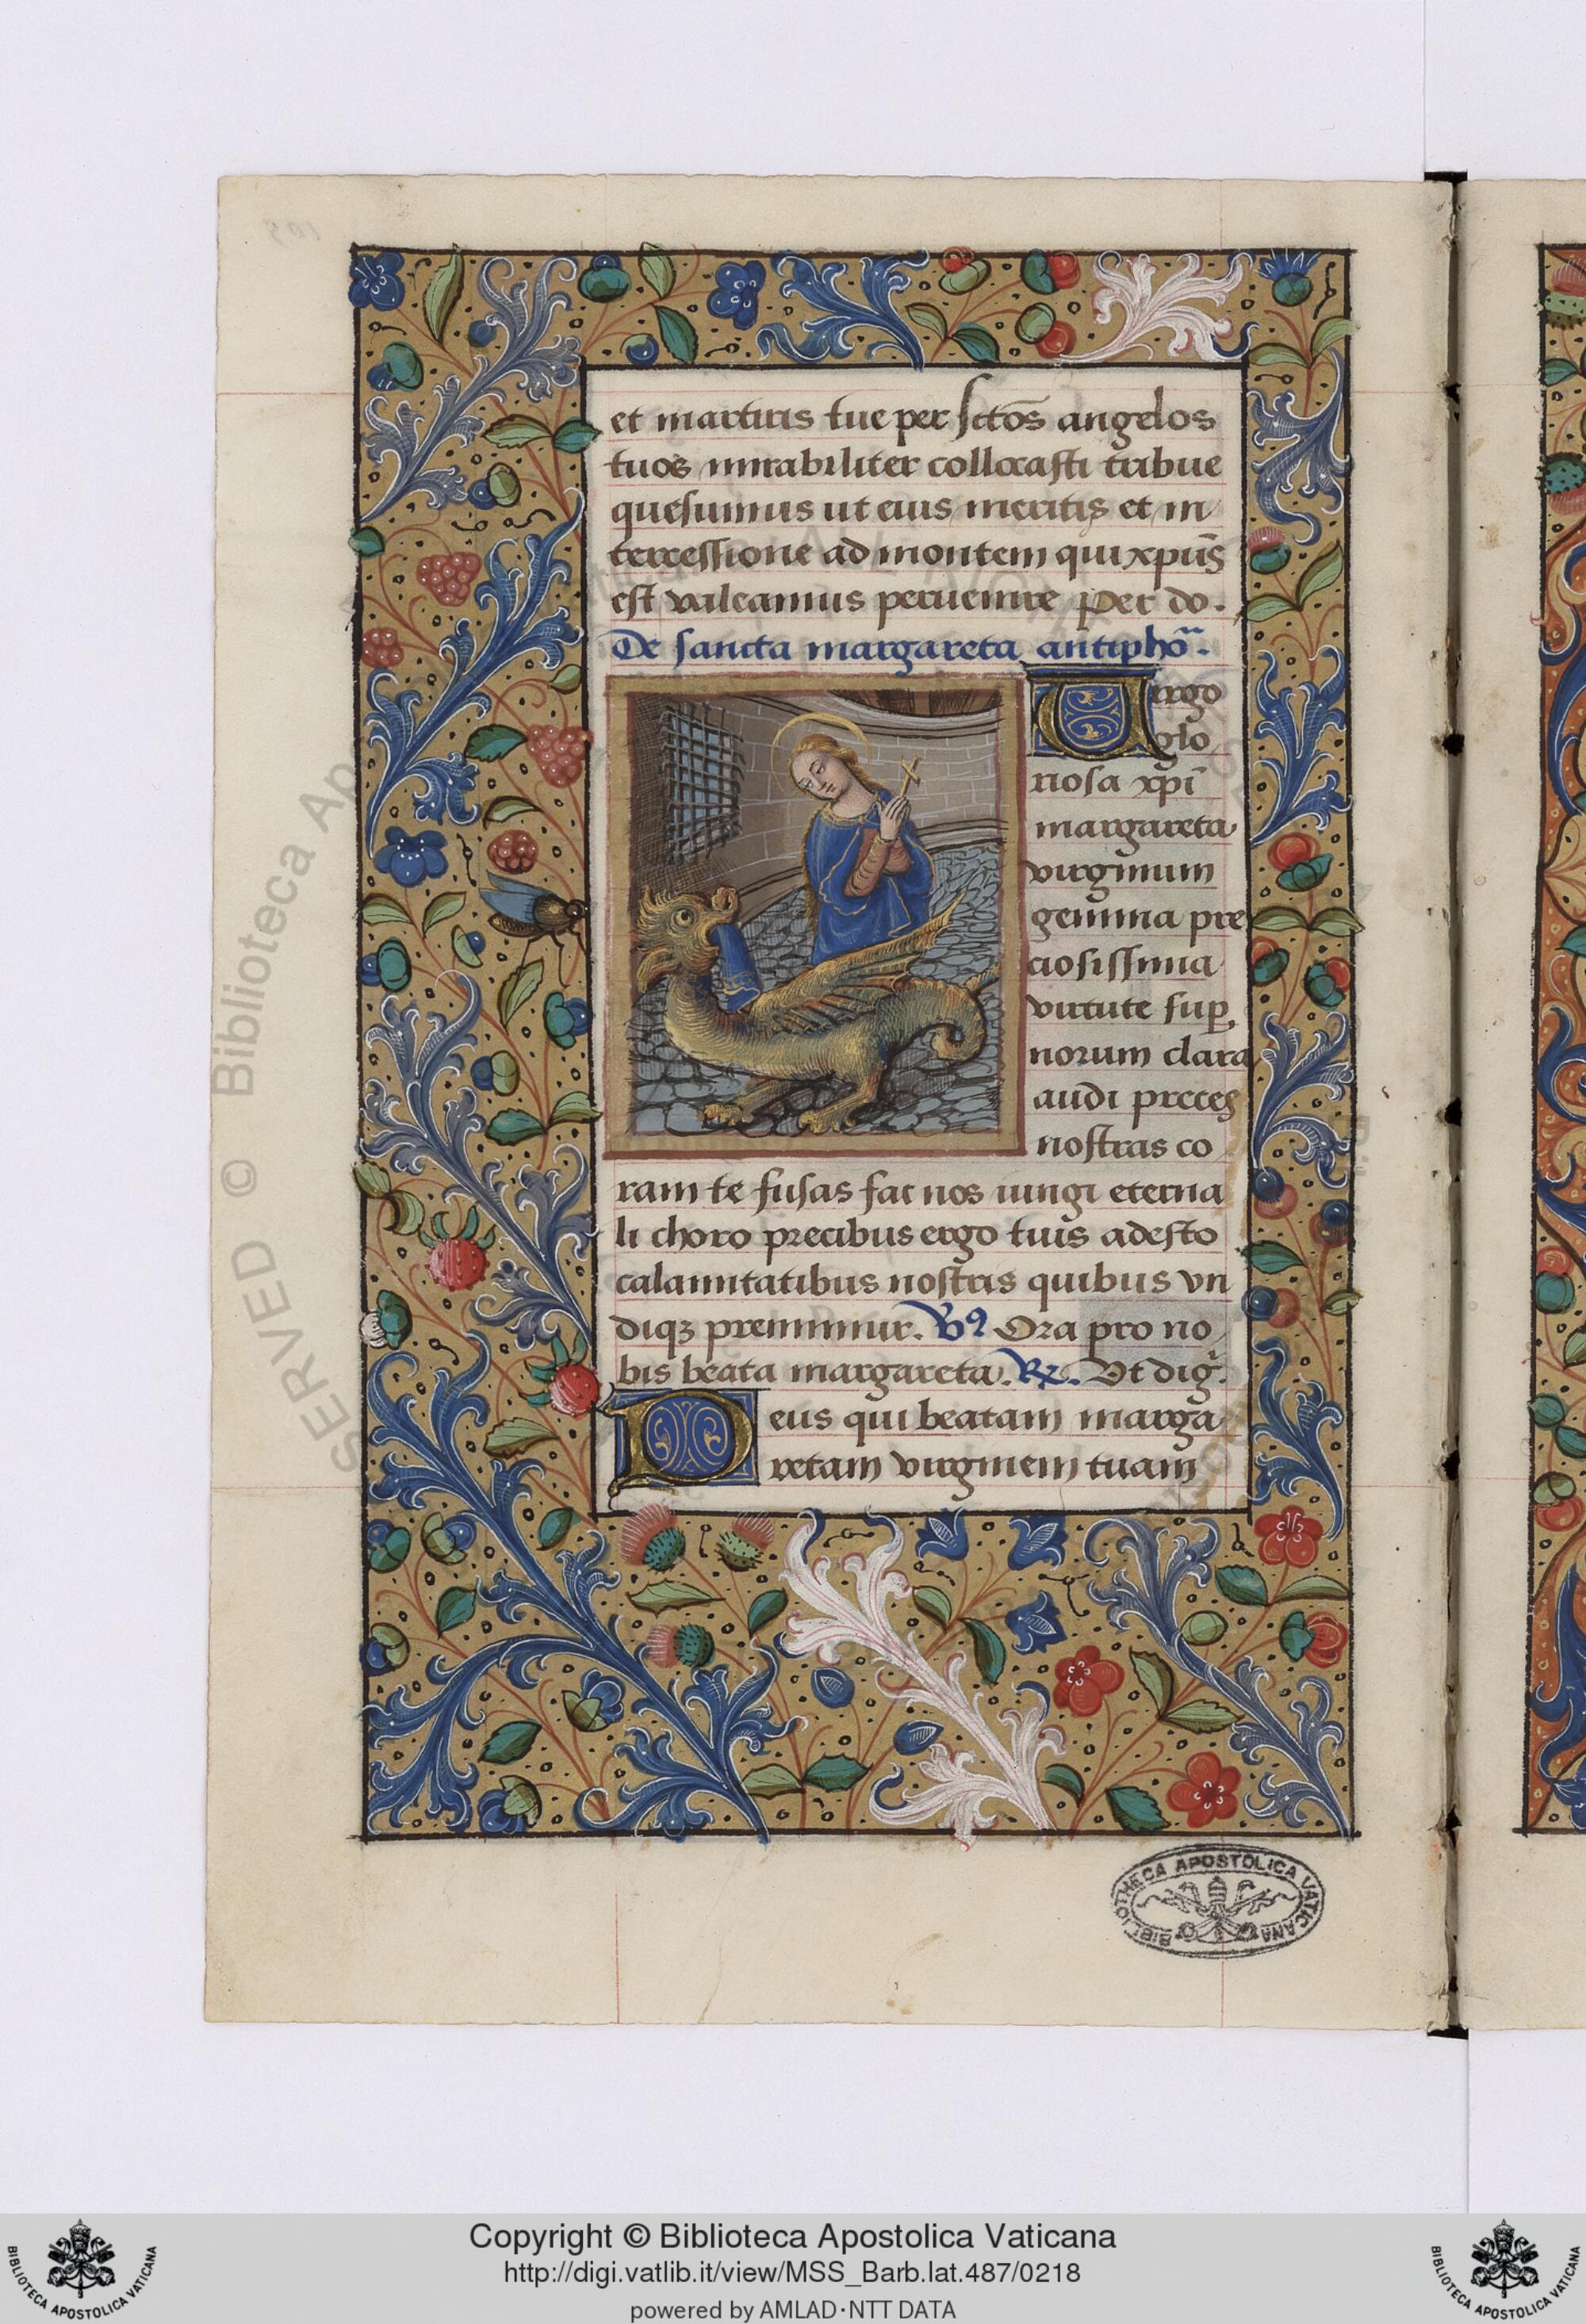 et martiris tue per sctōs angelos
tuos mirabiliter collocasti tribue
quesumus ut eius meritis et in
tercessione ad montem qui xpūs
est valeamus peruenire Per do.
De sancta margareta antiphō.
Virgo
glo
riosa xpī
margareta
virginum
gemma pre
ciosissima
virtute sup
norum clara
audi preces
nostras co
ram te fusas fac nos iungi eterna
li choro precibus ergo tuis adesto
calamitatibus nostris quibus vn
diqꝫ premimur. Vꝰ Ora pro no
bis beata margareta. ℞. Vt dig.
Deus qui beatam marga
retam virginem tuam
BIBLIOTHECA APOSTOLICA VATICANA
SERVED © Biblioteca Ap
Copyright © Biblioteca Apostolica Vaticana
http://digi.vatlib.it/view/MSS_Barb.lat.487/0218
powered by AMLAD·NTT DATA
BIBLIOTECA APOSTOLICA VATICANA
BIBLIOTECA APOSTOLICA VATICANA